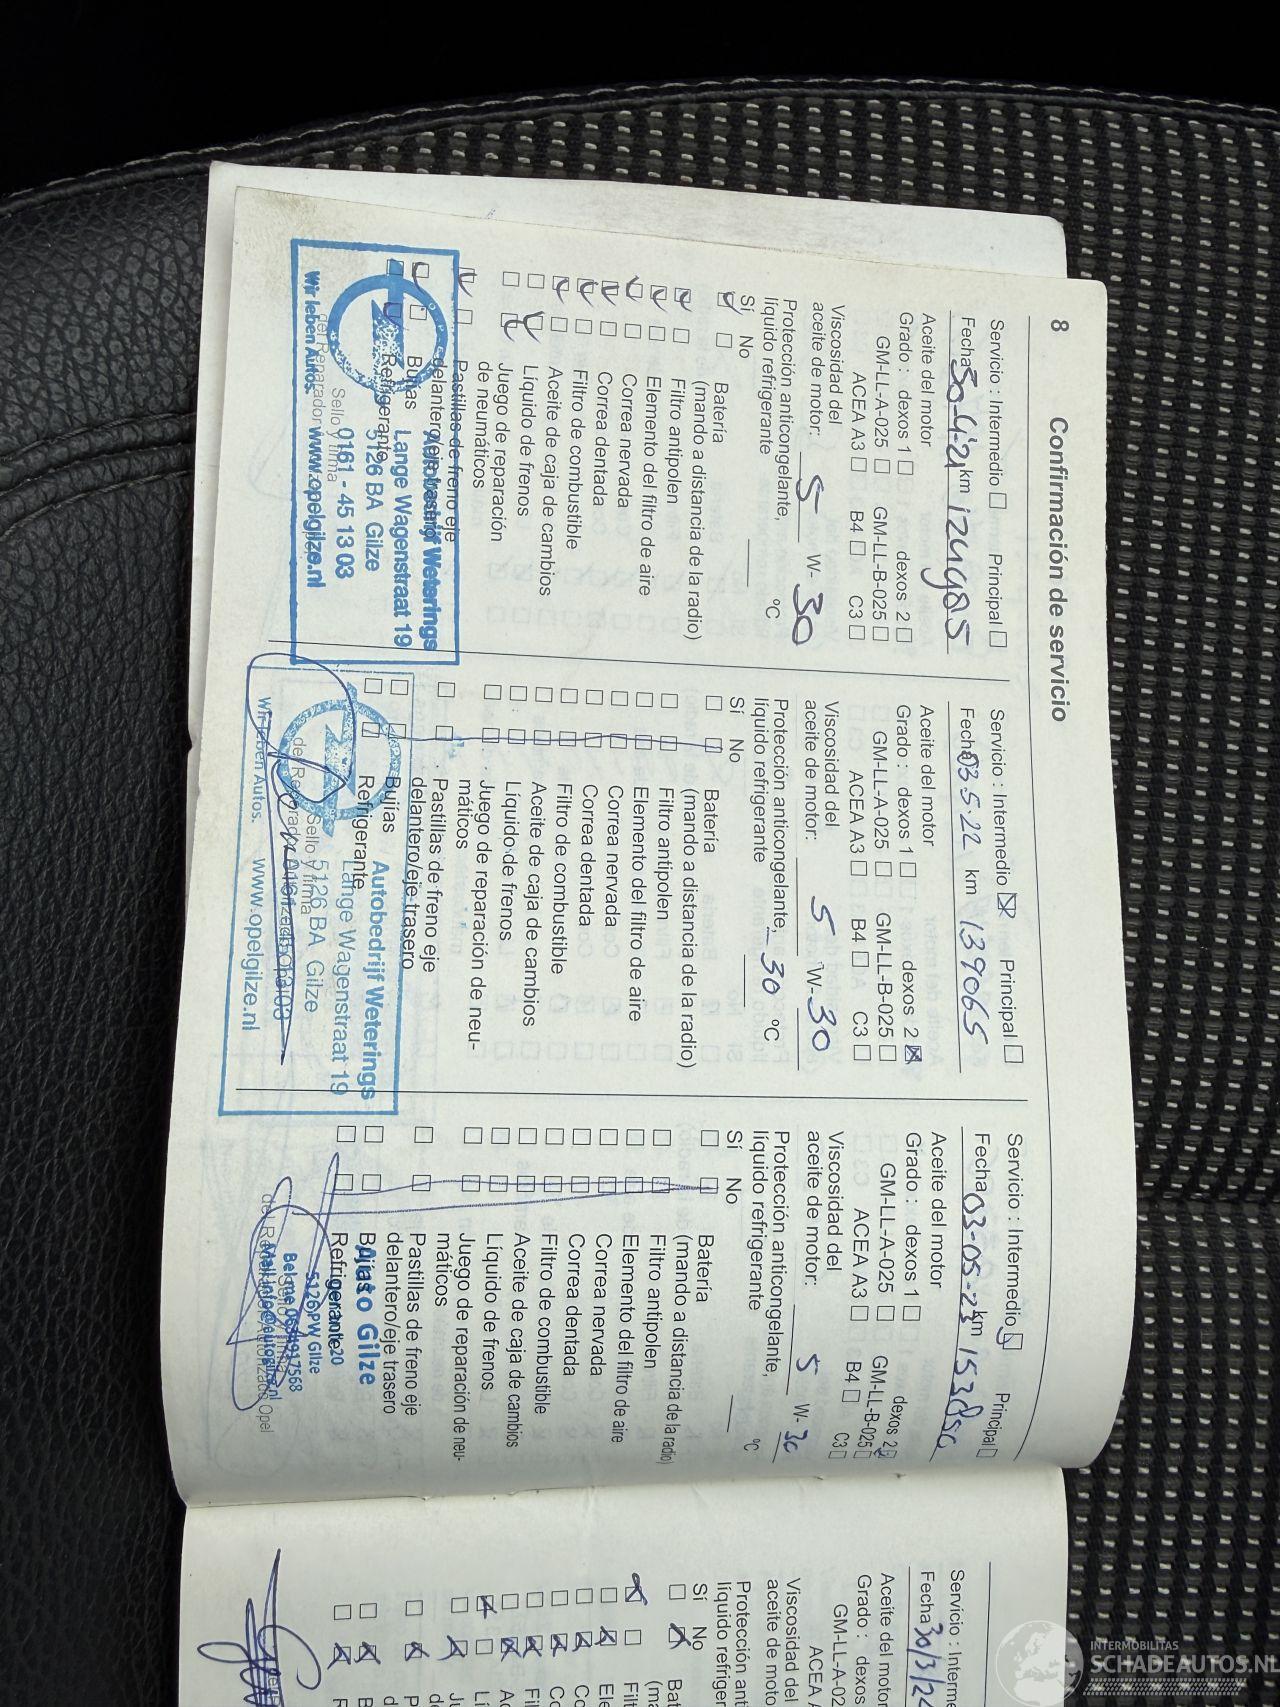 8 Confirmación de servicio
Servicio : Intermedio Principal
Fecha 30-4-21 km 124905
Aceite del motor
Grado : dexos 1 dexos 2
GM-LL-A-025 GM-LL-B-025
ACEA A3 B4 C3
Viscosidad del
aceite de motor: 5 W- 30
Protección anticongelante,
líquido refrigerante °C
Sí No
Batería
(mando a distancia de la radio)
Filtro antipolen
Elemento del filtro de aire
Correa nervada
Correa dentada
Filtro de combustible
Aceite de caja de cambios
Líquido de frenos
Juego de reparación
de neumáticos
Pastillas de freno eje
delantero/eje trasero
Bujías
Refrigerante
Sello y firma
del Reparador
Autobedrijf Weterings
Lange Wagenstraat 19
5126 BA Gilze
0161 - 45 13 03
Wir leben Autos. www.opelgilze.nl
Servicio : Intermedio Principal
Fecha 03.5.22 km 139065
Aceite del motor
Grado : dexos 1 dexos 2
GM-LL-A-025 GM-LL-B-025
ACEA A3 B4 C3
Viscosidad del
aceite de motor: 5 W- 30
Protección anticongelante,
líquido refrigerante -30 °C
Sí No
Batería
(mando a distancia de la radio)
Filtro antipolen
Elemento del filtro de aire
Correa nervada
Correa dentada
Filtro de combustible
Aceite de caja de cambios
Líquido de frenos
Juego de reparación de neu-
máticos
Pastillas de freno eje
delantero/eje trasero
Bujías
Refrigerante
Sello y firma
Autobedrijf Weterings
Lange Wagenstraat 19
5126 BA Gilze
Wir leben Autos. www.opelgilze.nl
Servicio : Intermedio Principal
Fecha 03-05-23 km
Aceite del motor
Grado : dexos 1 dexos 2
GM-LL-A-025 GM-LL-B-025
ACEA A3 B4 C3
Viscosidad del
aceite de motor: 5 W- 30
Protección anticongelante,
líquido refrigerante °C
Sí No
Batería
(mando a distancia de la radio)
Filtro antipolen
Elemento del filtro de aire
Correa nervada
Correa dentada
Filtro de combustible
Aceite de caja de cambios
Líquido de frenos
Juego de reparación de neu-
máticos
Pastillas de freno eje
delantero/eje trasero
Bujías
Refrigerante
Gilze
5126 PW Gilze
Servicio : Interme
Fecha 30/3/24
Aceite del motor
Grado : dexos
GM-LL-A-02
ACEA
Viscosidad del
aceite de moto
Protección anti
líquido refriger
Sí No
INTERMOBILITAS
SCHADEAUTOS.NL